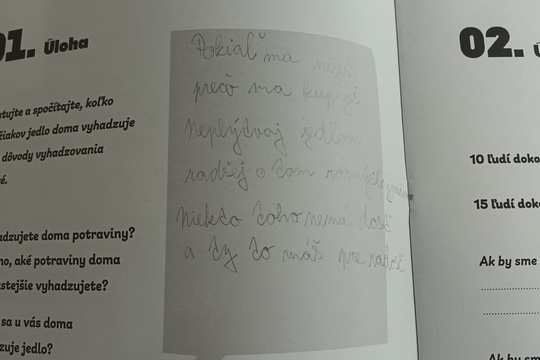 01. Úloha
tujte a spočítajte, koľko
čiakov jedlo doma vyhadzuje
dôvody vyhadzovania
é.
adzujete doma potraviny?
no, aké potraviny doma
astejšie vyhadzujete?
sa u vás doma
zuje jedlo?
Pokiaľ ma
prečo ma kupuješ
neplýtvaj jedlom
radšej o tom
niekto toho nemá dosť
a ty to máš pre radosť
02. Ú
10 ľudí doko
15 ľudí doko
Ak by sme
Ak by sme